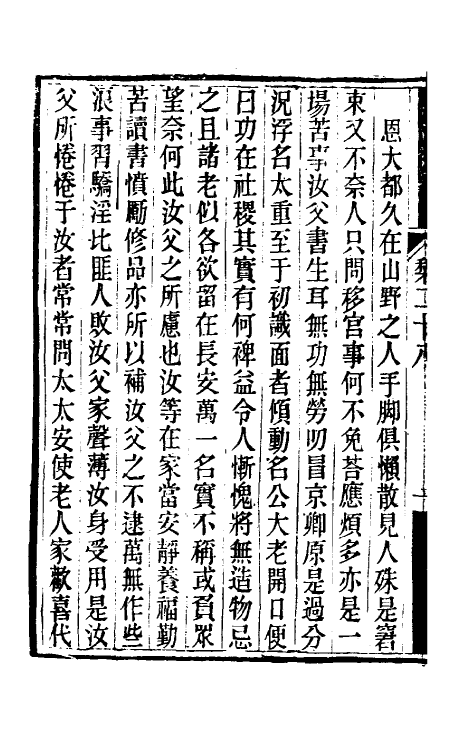 恩大都久在山野之人手脚俱懶散見人殊是窘
束又不奈人只問移官事何不免荅應煩多亦是一
塲苦事汝父書生耳無功無勞叨冒京卿原是過分
況浮名太重至于初識面者傾動名公大老開口便
曰功在社稷其實有何裨益令人慚愧將無造物忌
之且諸老似各欲留在長安萬一名實不稱或負眾
望奈何此汝父之所慮也汝等在家當安靜養福勤
苦讀書憤勵修品亦所以補汝父之不逮萬無作些
浪事習驕淫比匪人敗汝父家聲薄汝身受用是汝
父所惓惓于汝者常常問太太安使老人家歡喜代